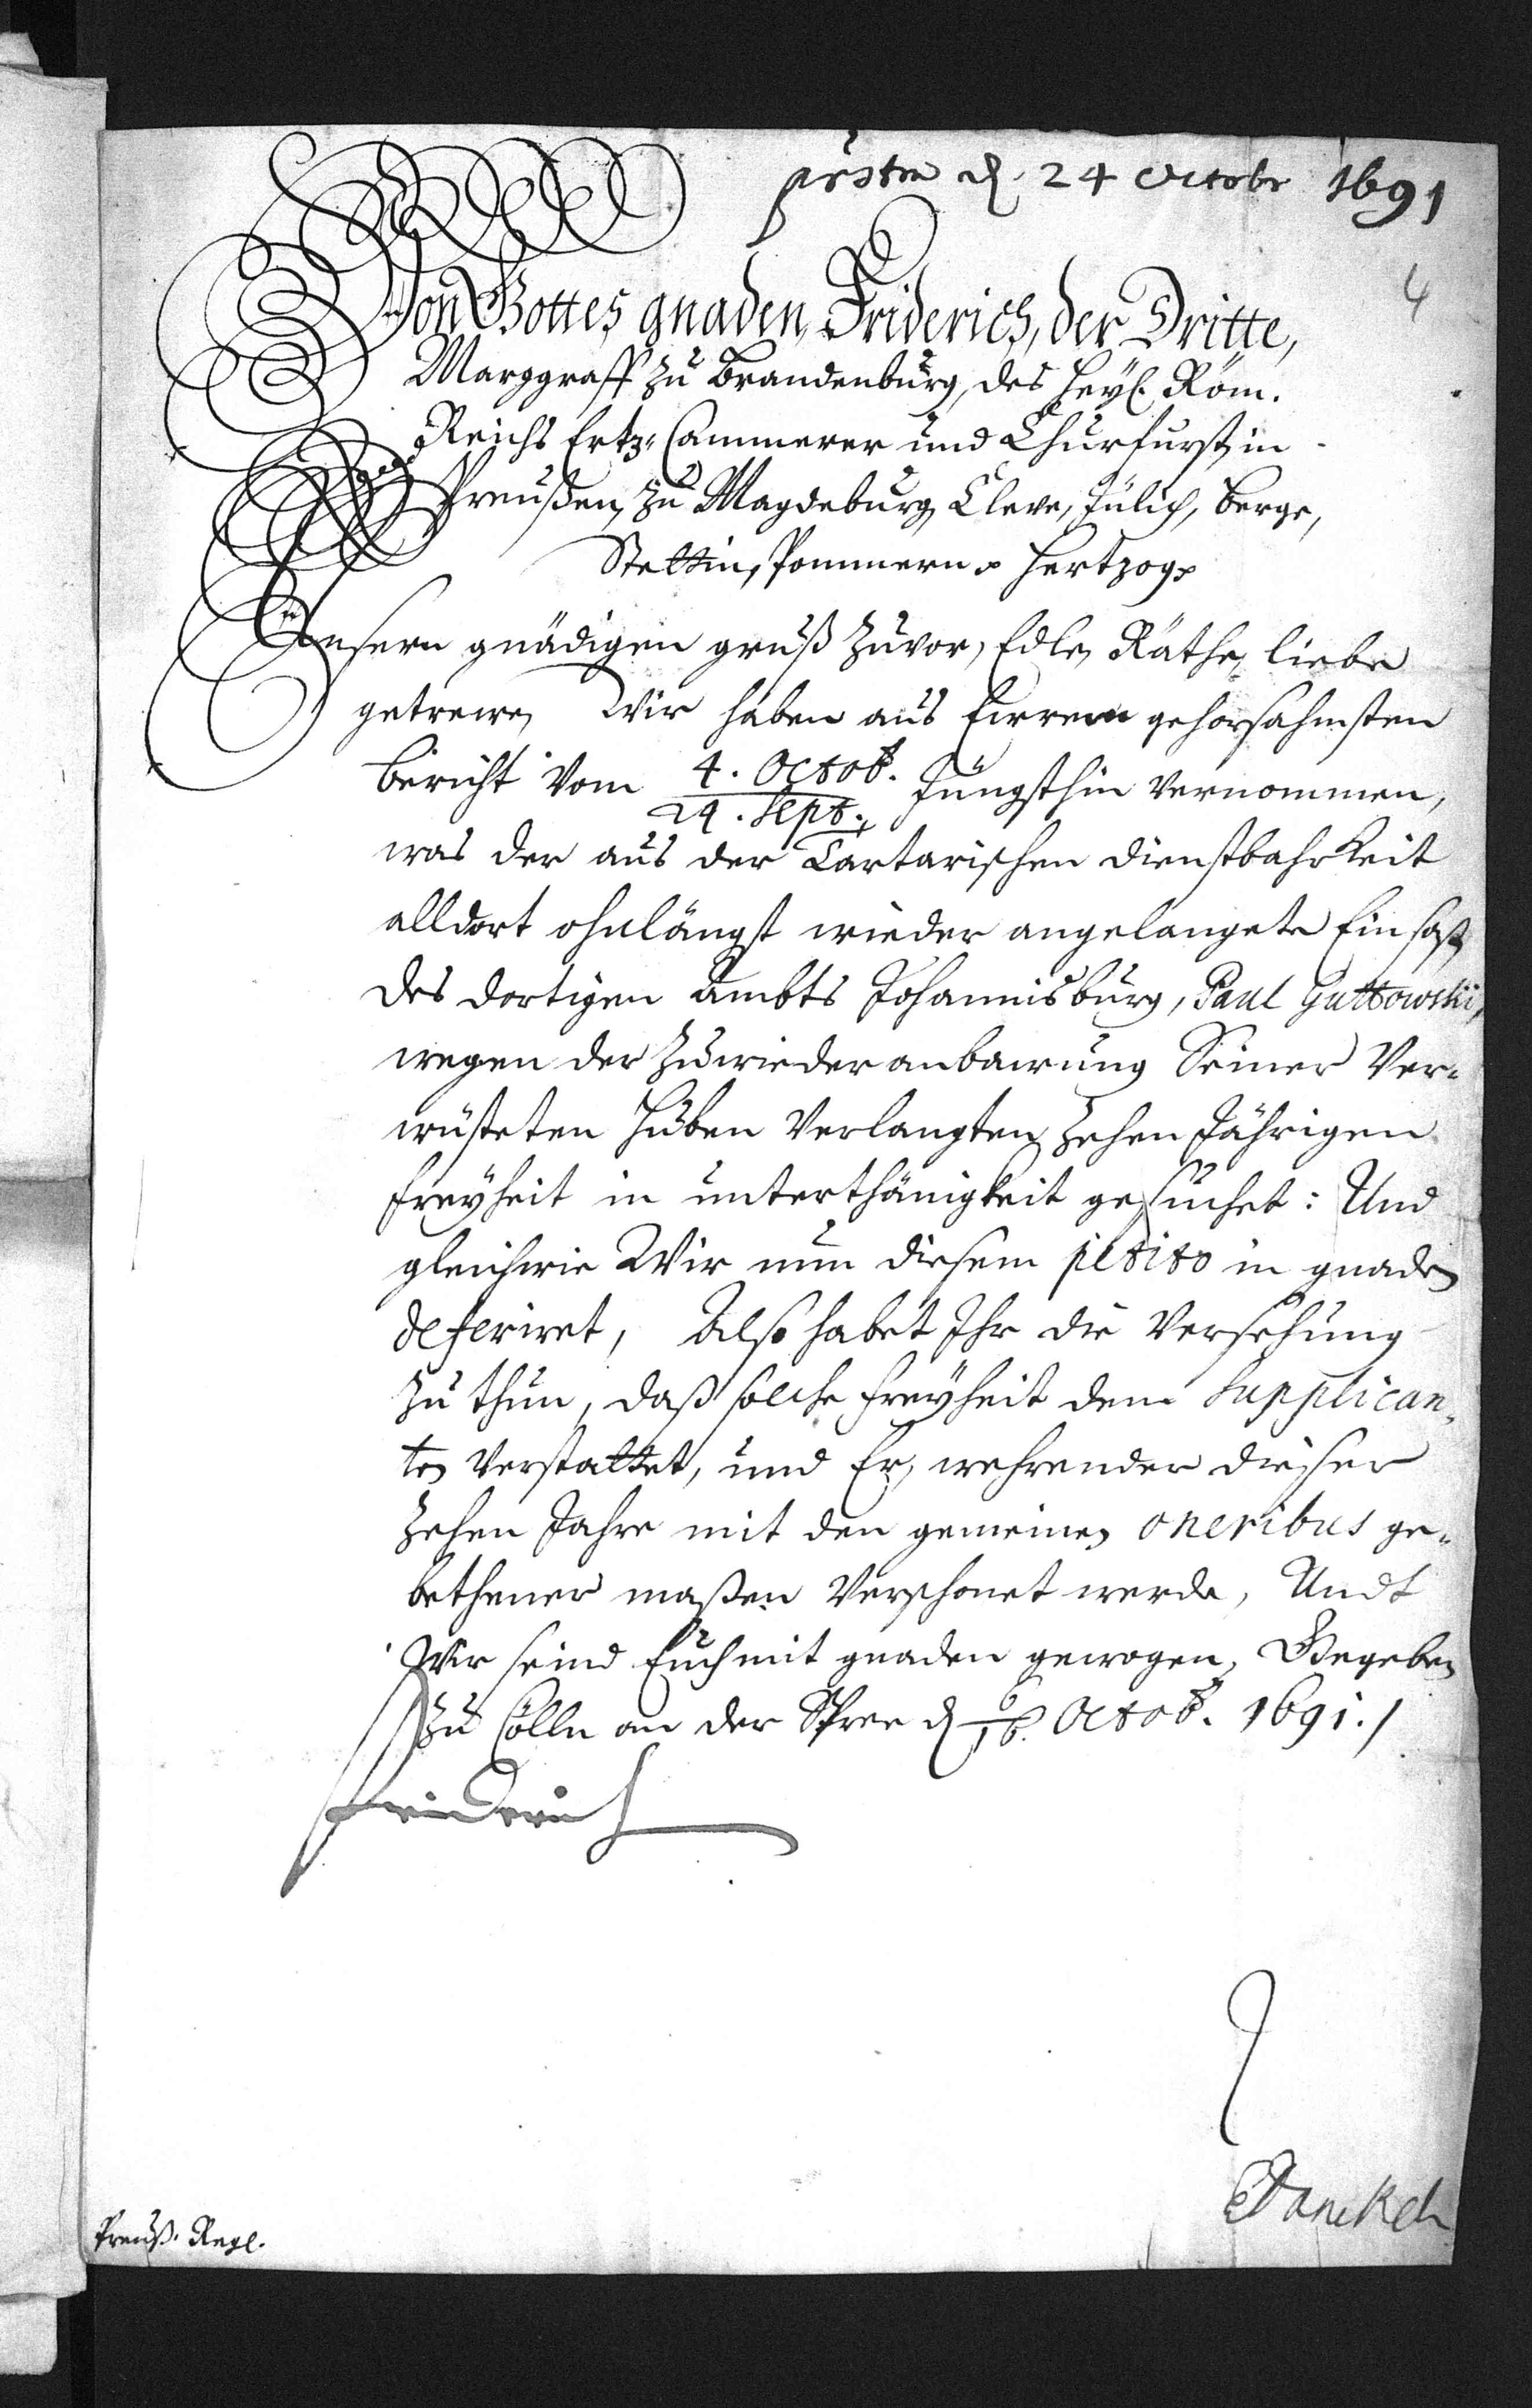 præstm d. 24 Octobr 1691
4
Von Gottes gnaden, Friderich, der Dritte,
Marggraff zu Brandenburg, des Heyl. Röm.
Reichs Ertz-Cammerer und Churfurst, in
Preußen, zu Magdeburg, Cleve, Jülich, Berge,
Stettin, Pommern Hertzog
Unsern gnädigen gruß zuvor, Edle Räthe, liebe
getrewe, Wir haben aus Eurem gehorsahmsten
bericht vom 4. Octob. / 24. Sept. jüngsthin vernommen,
was der aus der Tartarischen dienstbahrkeit
alldort ohnlängst wieder angelangete Einsaß
des dortigen Ambts Johannisburg, Paul Guttowski,
wegen der zu wieder anbawung Seiner Ver-
wüsteten Huben verlangten zehen Jährigen
freyheit in unterthänigkeit gesuchet: Und
gleichwie Wir nun diesem petito in gnaden
deferiret, Also habet Ihr die Versehung
zu thun, daß solche freyheit dem Supplican-
ten verstattet, und Er, wehrender dieser
zehen Jahre mit den gemeinen oneribus ge-
bethener maßen verschonet werde, Undt
Wir seind Euch mit gnaden gewogen, Gegeben
zu Cölln an der Spree d 6/16. Octob. 1691.
Friderich
Danckel
Preuß. Reg.